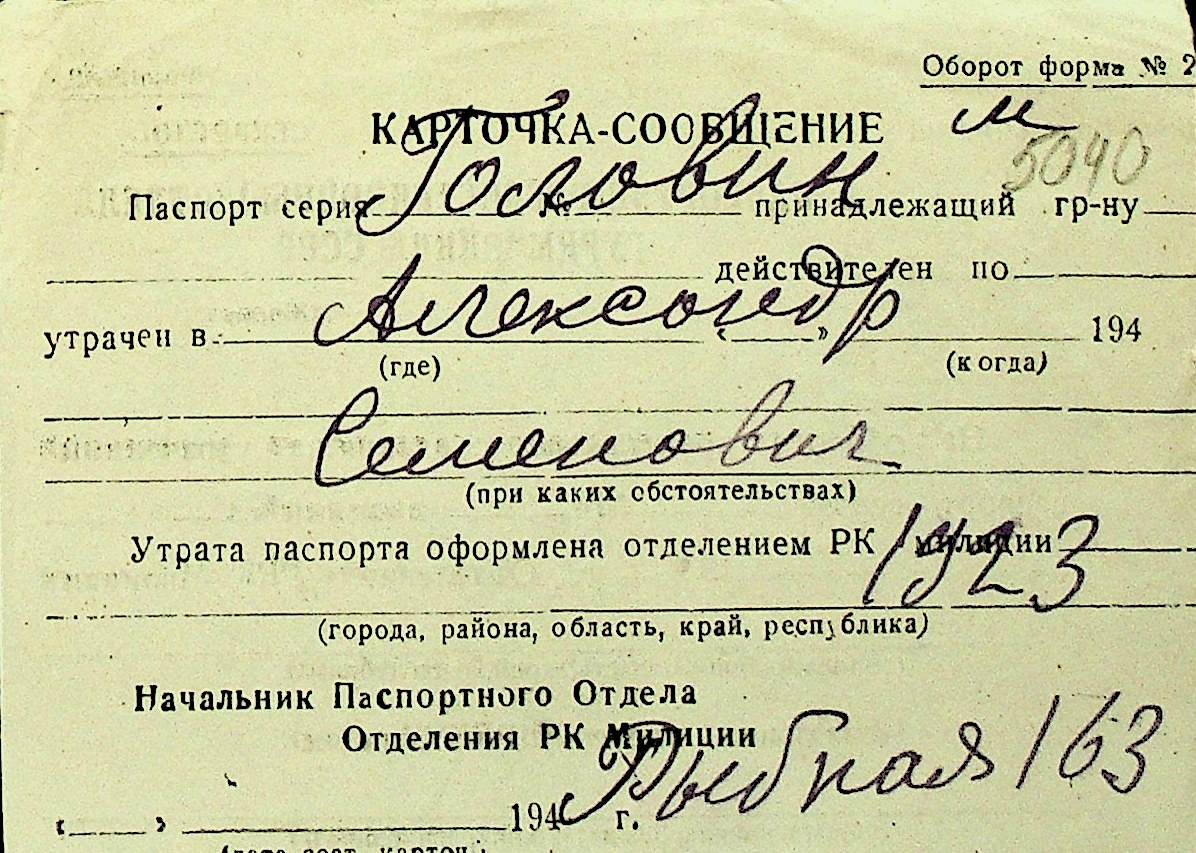 Оборот форма № 2
КАРТОЧКА-СООБЩЕНИЕ м
5040
Головин
Паспорт серия № принадлежащий гр-ну
действителен по
Александр
утрачен в « » 194
(где) (когда)
Семенович
(при каких обстоятельствах)
Утрата паспорта оформлена отделением РК милиции
1923
(города, района, область, край, республика)
Начальник Паспортного Отдела
Отделения РК Милиции
Рыбная 163
« » 194 г.